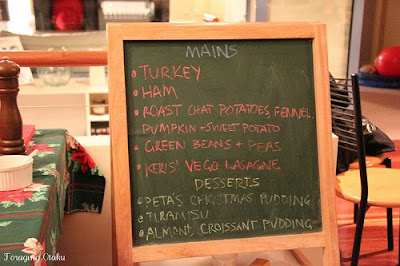 MAINS
• TURKEY
• HAM
• ROAST CHAT POTATOES, FENNEL,
PUMPKIN + SWEET POTATO
• GREEN BEANS + PEAS
• KERIS' VEGO LASAGNE
DESSERTS
• PETA'S CHRISTMAS PUDDING
• TIRAMISU
• ALMOND CROISSANT PUDDING
Foraging Otaku